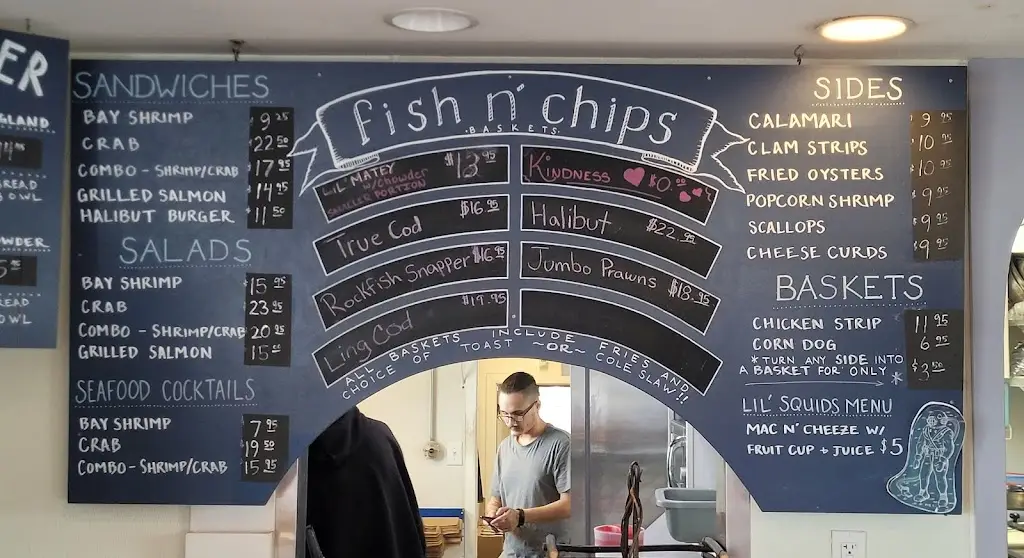 ER
GLAND
READ
OWL
WDER
READ
OWL
SANDWICHES
BAY SHRIMP 9 25
CRAB 22 50
COMBO - SHRIMP/CRAB 17 95
GRILLED SALMON 14 95
HALIBUT BURGER 11 50
SALADS
BAY SHRIMP 15 95
CRAB 23 95
COMBO - SHRIMP/CRAB 20 95
GRILLED SALMON 15
SEAFOOD COCKTAILS
BAY SHRIMP 7 95
CRAB 19 50
COMBO - SHRIMP/CRAB 15 95
fish n' chips
BASKETS
LIL' MATEY w/Chowder $13 95
SMALLER PORTION
True Cod $16.95
Rockfish Snapper $16 95
Ling Cod $19.95
KINDNESS $0.
Halibut $22.95
Jumbo Prawns $18.95
ALL BASKETS INCLUDE FRIES AND
CHOICE OF TOAST ~OR~ COLE SLAW!!
SIDES
CALAMARI 9 95
CLAM STRIPS 10
FRIED OYSTERS 10 95
POPCORN SHRIMP 9 95
SCALLOPS 9 95
CHEESE CURDS 9 95
BASKETS
CHICKEN STRIP 11 95
CORN DOG 6 95
*TURN ANY SIDE INTO
A BASKET FOR ONLY * $3.50
LIL' SQUIDS MENU
MAC N' CHEEZE W/
FRUIT CUP + JUICE $5